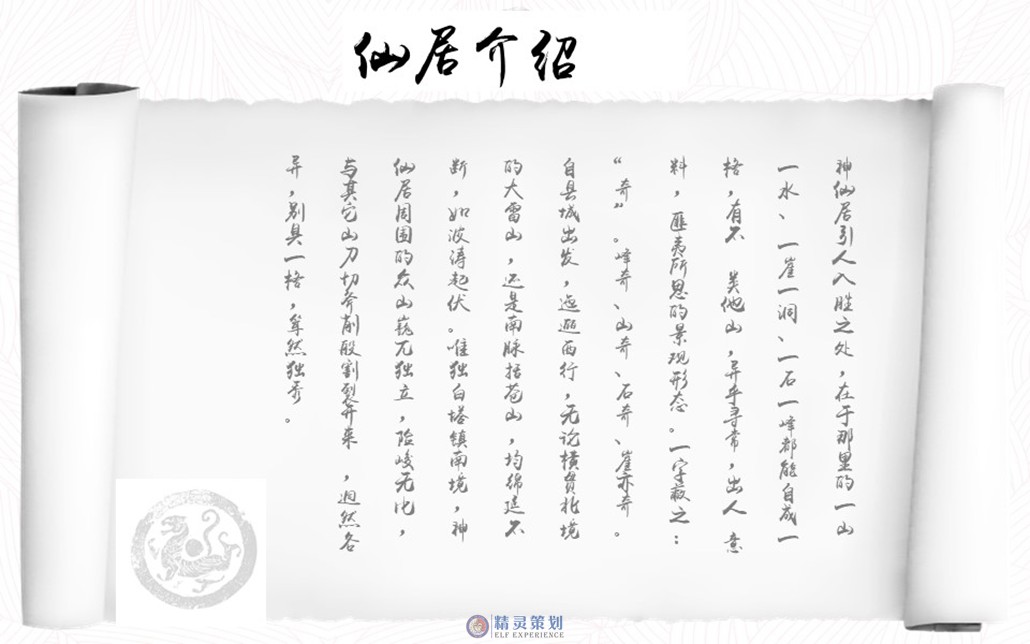 仙居介绍
神仙居引人入胜之处，在于那里的一山
一水、一崖一洞、一石一峰都能自成一
格，有不 类他山，异乎寻常，出人 意
料，匪夷所思的景观形态。一字蔽之：
“奇”。峰奇、山奇、石奇、崖亦奇。
自县城出发，迤逦西行，无论横贯北境
的大雷山，还是南脉括苍山，均绵延不
断，如波涛起伏。唯独白塔镇南境，神
仙居周围的众山巍兀独立，险峻无比，
与其它山刀切斧削般割裂开来 ，迥然各
异，别具一格，隼然独秀。
精灵策划
ELF EXPERIENCE